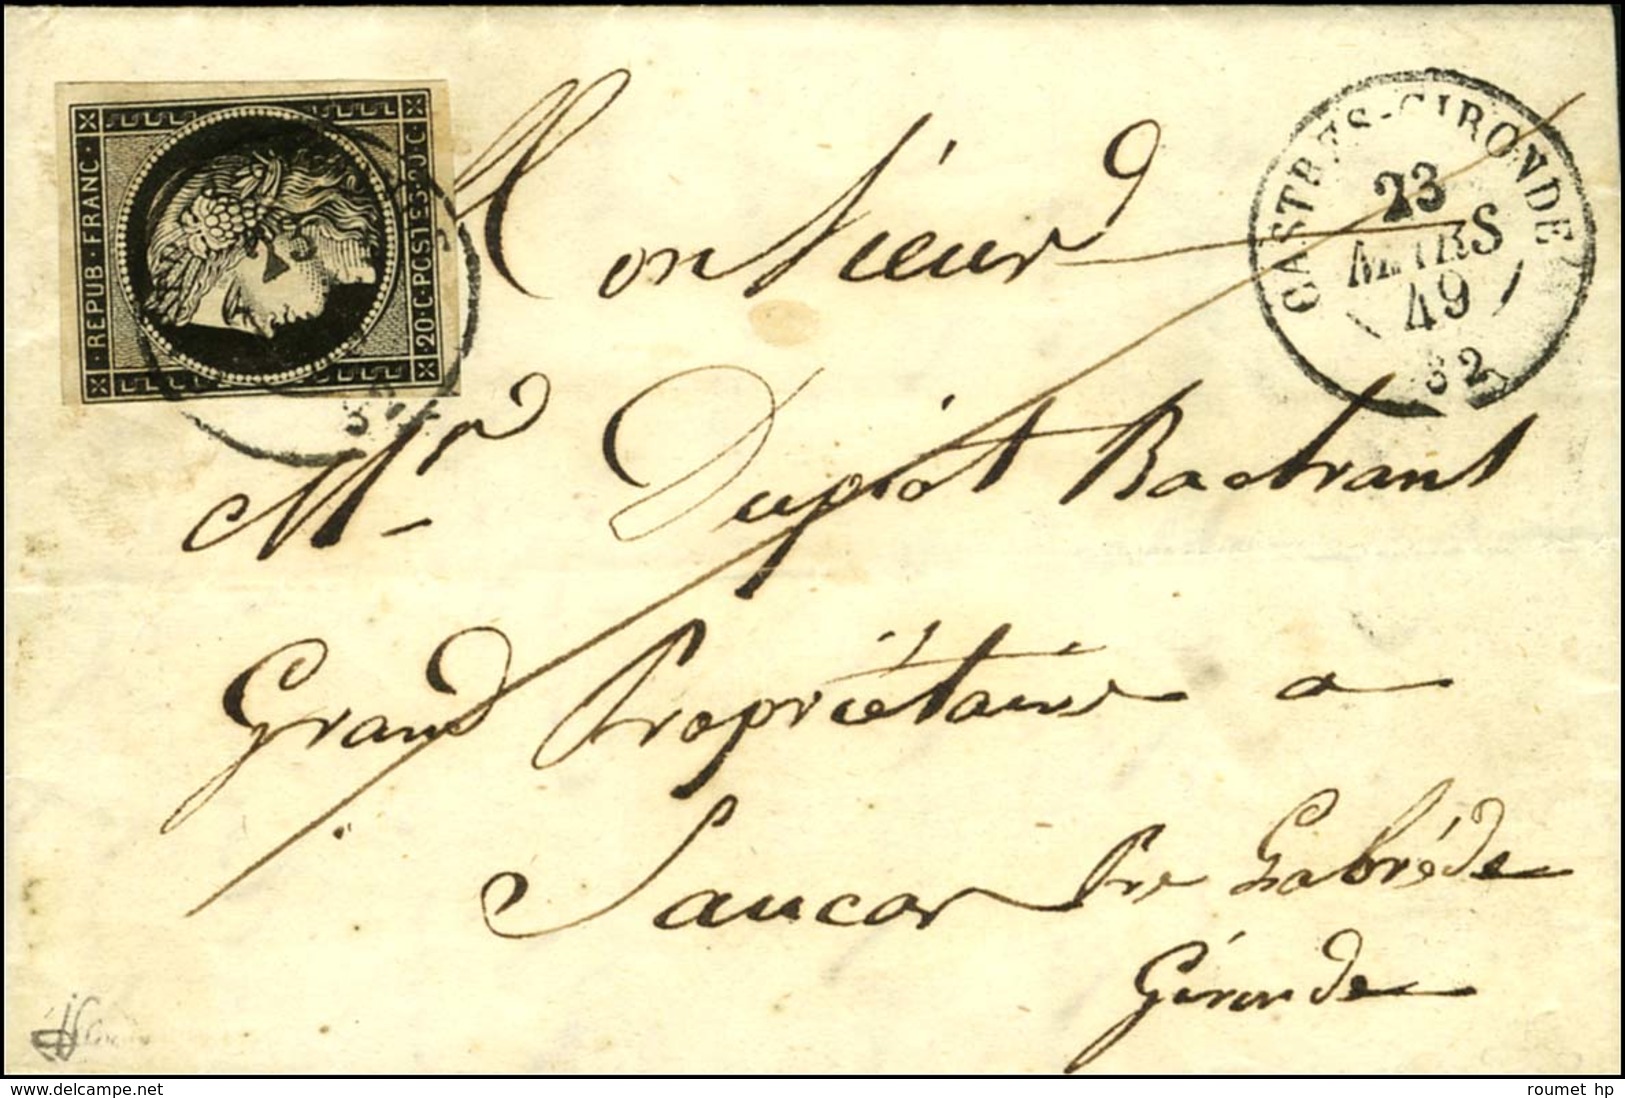 REPUB·FRANC·
20·C·POSTES·20·C
23
32
CASTRES-GIRONDE
23
MARS
49
32
Monsieur
Mr Dupiot Bactrant
Grand Propriétaire a
Saucas Pre Labréde
Gironde
www.delcampe.net
roumet hp